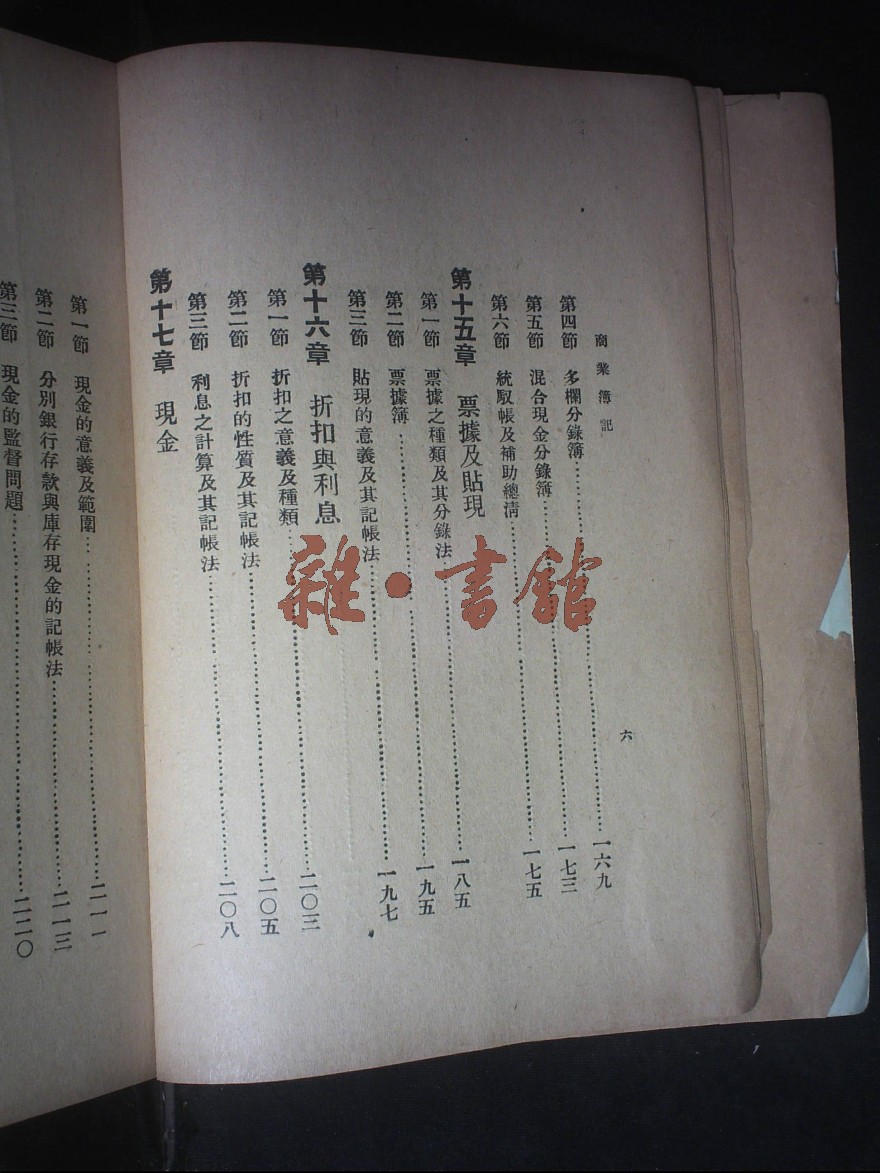 商業簿記
六
第四節 多欄分錄簿……一六九
第五節 混合現金分錄簿……一七三
第六節 統馭帳及補助總清……一七五
第十五章 票據及貼現
第一節 票據之種類及其分錄法……一八五
第二節 票據簿……一九五
第三節 貼現的意義及其記帳法……一九七
第十六章 折扣與利息
第一節 折扣之意義及種類……二〇三
第二節 折扣的性質及其記帳法……二〇五
第三節 利息之計算及其記帳法……二〇八
第十七章 現金
第一節 現金的意義及範圍……二一一
第二節 分別銀行存款與庫存現金的記帳法……二一三
第三節 現金的監督問題……二二〇
雜·書館